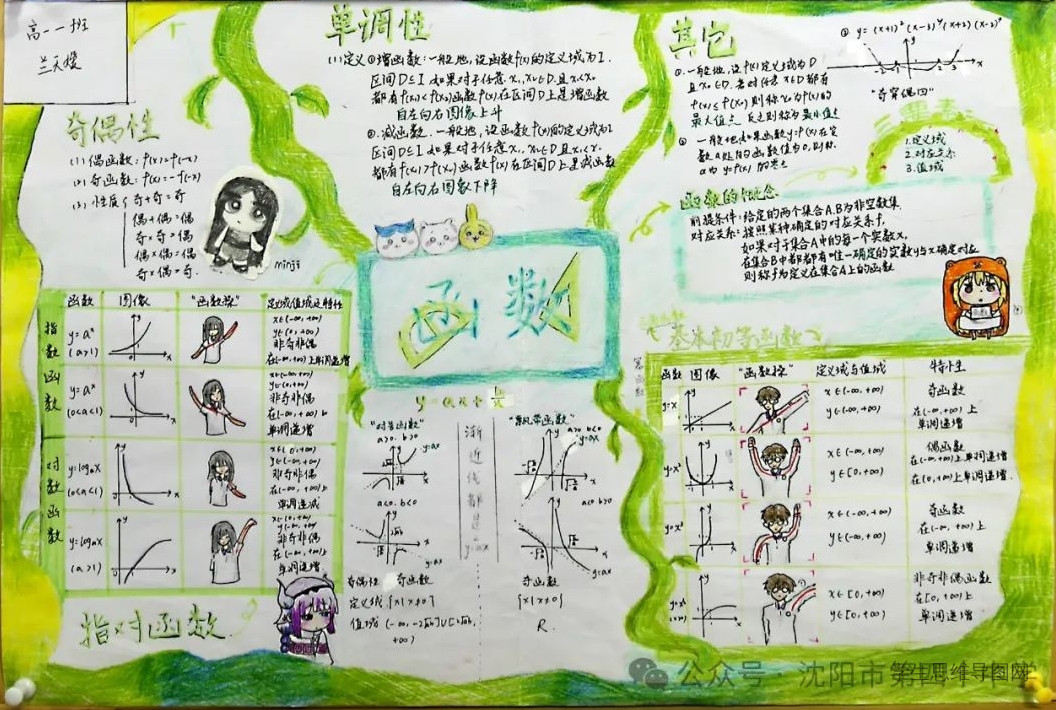 高一一班
奇偶性
(1) 偶函数: f(x)=f(-x)
(2) 奇函数: f(x)=-f(-x)
(3) 性质: 奇+奇=奇
偶+偶=偶
奇×奇=偶
偶×偶=偶
奇×偶=奇.
minji
单调性
(1)定义①增函数:一般地,设函数f(x)的定义域为I.
区间D⊆I.如果对于任意x₁,x₂∈D且x₁<x₂
都有f(x₁)<f(x₂)函数f(x)在区间D上是增函数
自左向右图像上升
②.减函数.一般地,设函数f(x)的定义域为I
区间D⊆I 如果对于任意x₁,x₂∈D且x₁<x₂
都有f(x₁)>f(x₂)函数f(x)在区间D上是减函数
自左向右图像下降
其它
①.一般地,设f(x)定义域为D
且x₀∈D.若对任意x∈D都有
f(x)≤f(x₀)则称x₀为f(x)的
最大值点.反之则称为最小值点
②一般地,如果函数y=f(x)在定
"奇穿偶回"
三要素
1.定义域
2.对应关系
3.值域
函数的概念
前提条件:给定的两个集合A.B为非空数集.
对应关系:按照某种确定的对应关系f,
如果对于集合A中的每一个实数x,
在集合B中都都有唯一确定的实数y与x确定对应
则称f为定义在集合A上的函数
函数
函数 图像 "函数操" 定义域值域及特性
指数函数
y=aˣ
(a>1)
x∈(-∞,+∞)
y∈(0,+∞)
非奇非偶
在(-∞,+∞)上单调递增
y=aˣ
(0<a<1)
x∈(-∞,+∞)
y∈(0,+∞)
非奇非偶
在(-∞,+∞)上
对数函数
y=logₐx
(0<a<1)
x∈(0,+∞)
y∈(-∞,+∞)
非奇非偶
单调递减
y=logₐx
(a>1)
x∈(0,+∞)
y∈(-∞,+∞)
非奇非偶
单调递增
指对函数
"对勾函数"
a>0.b>0
y=ax
a<0.b<0
y=ax
渐近线都是
y=ax
奇偶性 奇函数
奇函数
定义域 {x|x≠0}
{x|x≠0}
值域
+∞)
R.
基本初等函数
函数 图像 "函数操" 定义域与值域 特性
y=x
x∈(-∞,+∞)
y∈(-∞,+∞)
奇函数
在(-∞,+∞)上
单调递增
y=x²
x∈(-∞,+∞)
y∈[0,+∞)
偶函数
在(0,+∞)上单调递增.
y=x³
x∈(-∞,+∞)
y∈(-∞,+∞)
奇函数
在(-∞,+∞)上
单调递增
x∈[0,+∞)
y∈[0,+∞)
非奇非偶函数
在[0,+∞)上
单调递增
公众号·沈阳市第四十中学
思维导图网